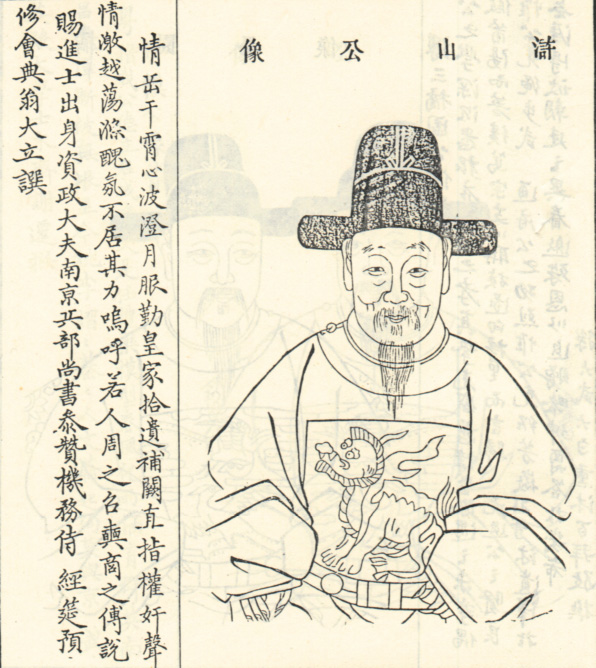 滸山公像
情岳干霄心波澄月眼勤皇家拾遺補闕直指權奸聲
情激越蕩滌醜氛不居其力嗚呼若人周之召奭商之傅說
賜進士出身資政大夫南京兵部尚書叅贊機務侍 經筵預
修會典翁大立譔